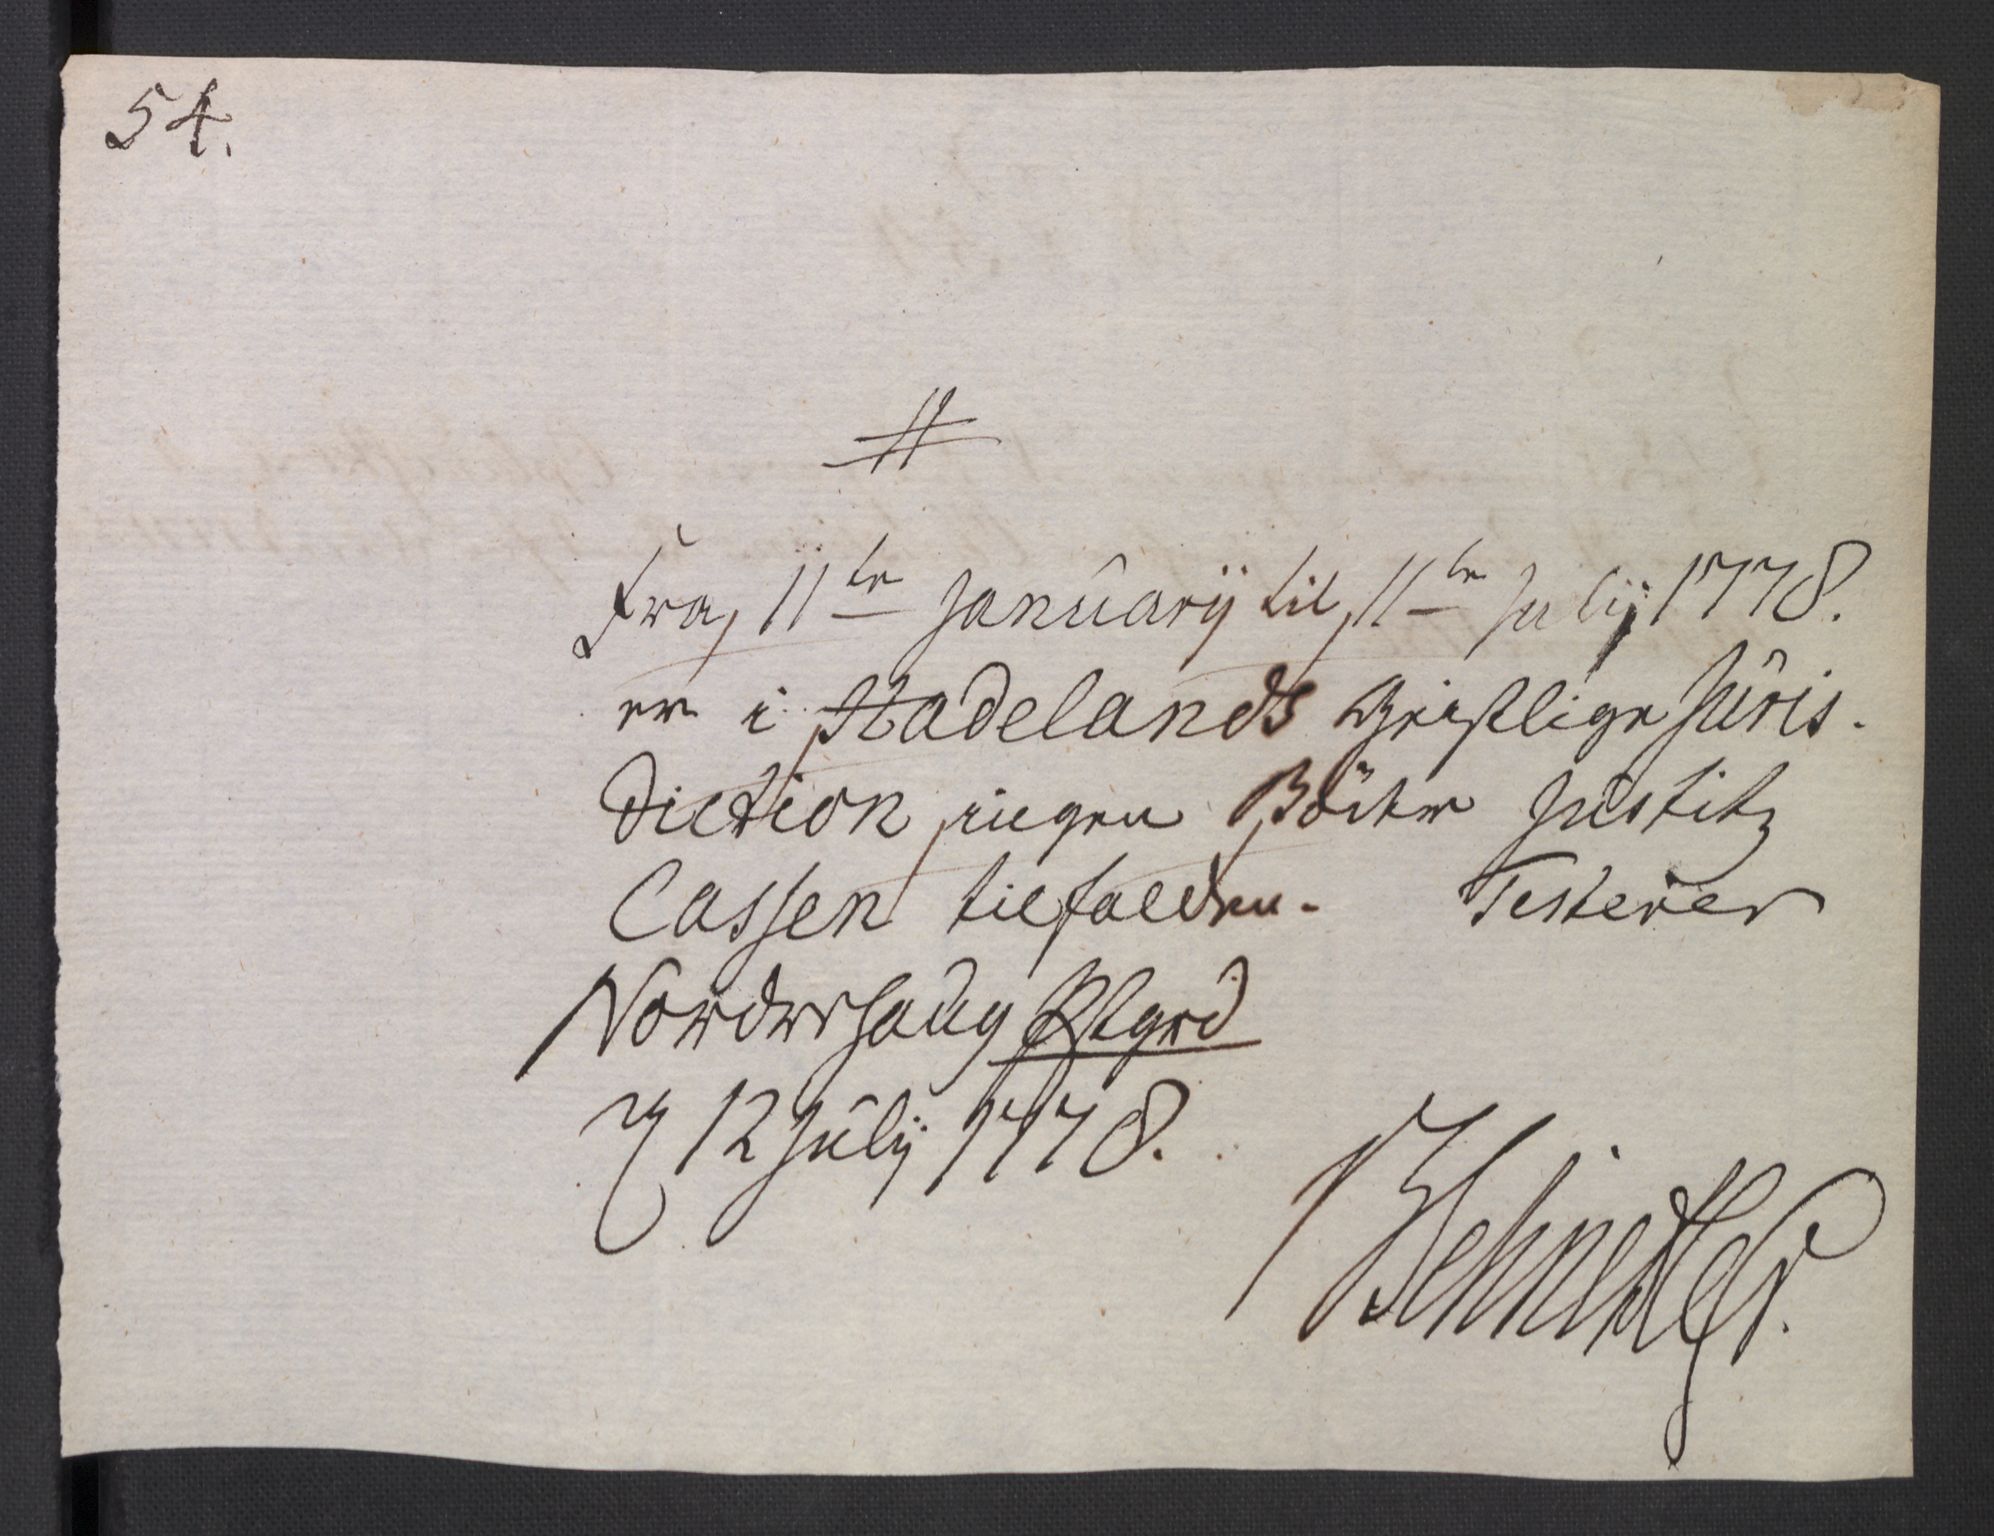 54.
#
Fra 11te Januarÿ til 11te Julÿ 1778.
er i Hadelands Geistlige Juris-
diction ingen Böder Justitz
Cassen tilfalden. Testerer
Norderhaug Pstgrd
12 Julÿ 1778.